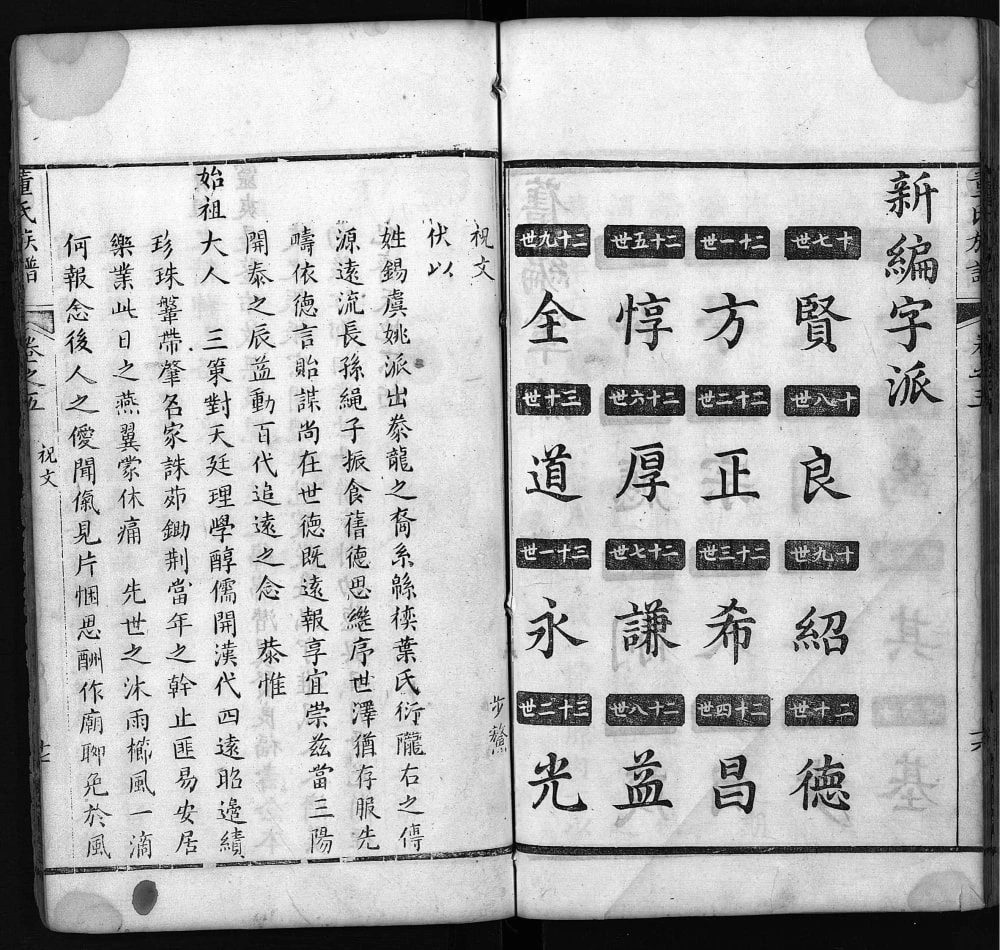 新編字派
十七世
賢
十八世
良
十九世
紹
二十世
德
二十一世
方
二十二世
正
二十三世
希
二十四世
昌
二十五世
惇
二十六世
厚
二十七世
謙
二十八世
益
二十九世
全
三十世
道
三十一世
永
三十二世
光
祝文 步鰲
伏以
姓錫虞姚派出豢龍之裔系緜
葉氏衍隴右之傳
源遠流長孫繩子振食舊德思繼序世澤猶存服先
疇依德言貽謀尚在世德既遠報享宜崇茲當三陽
開泰之辰益動百代追遠之念 恭惟
始祖大人 三策對天廷理學醇儒開漢代四遠昭邊績
珍珠鞶帶肇名家誅茆鋤荆當年之幹止匪易安居
樂業此日之燕翼蒙休痛 先世之沐雨櫛風一滴
何報念後人之僾聞愾見片悃思酬作廟聊免於風
董氏族譜 卷之五 祝文